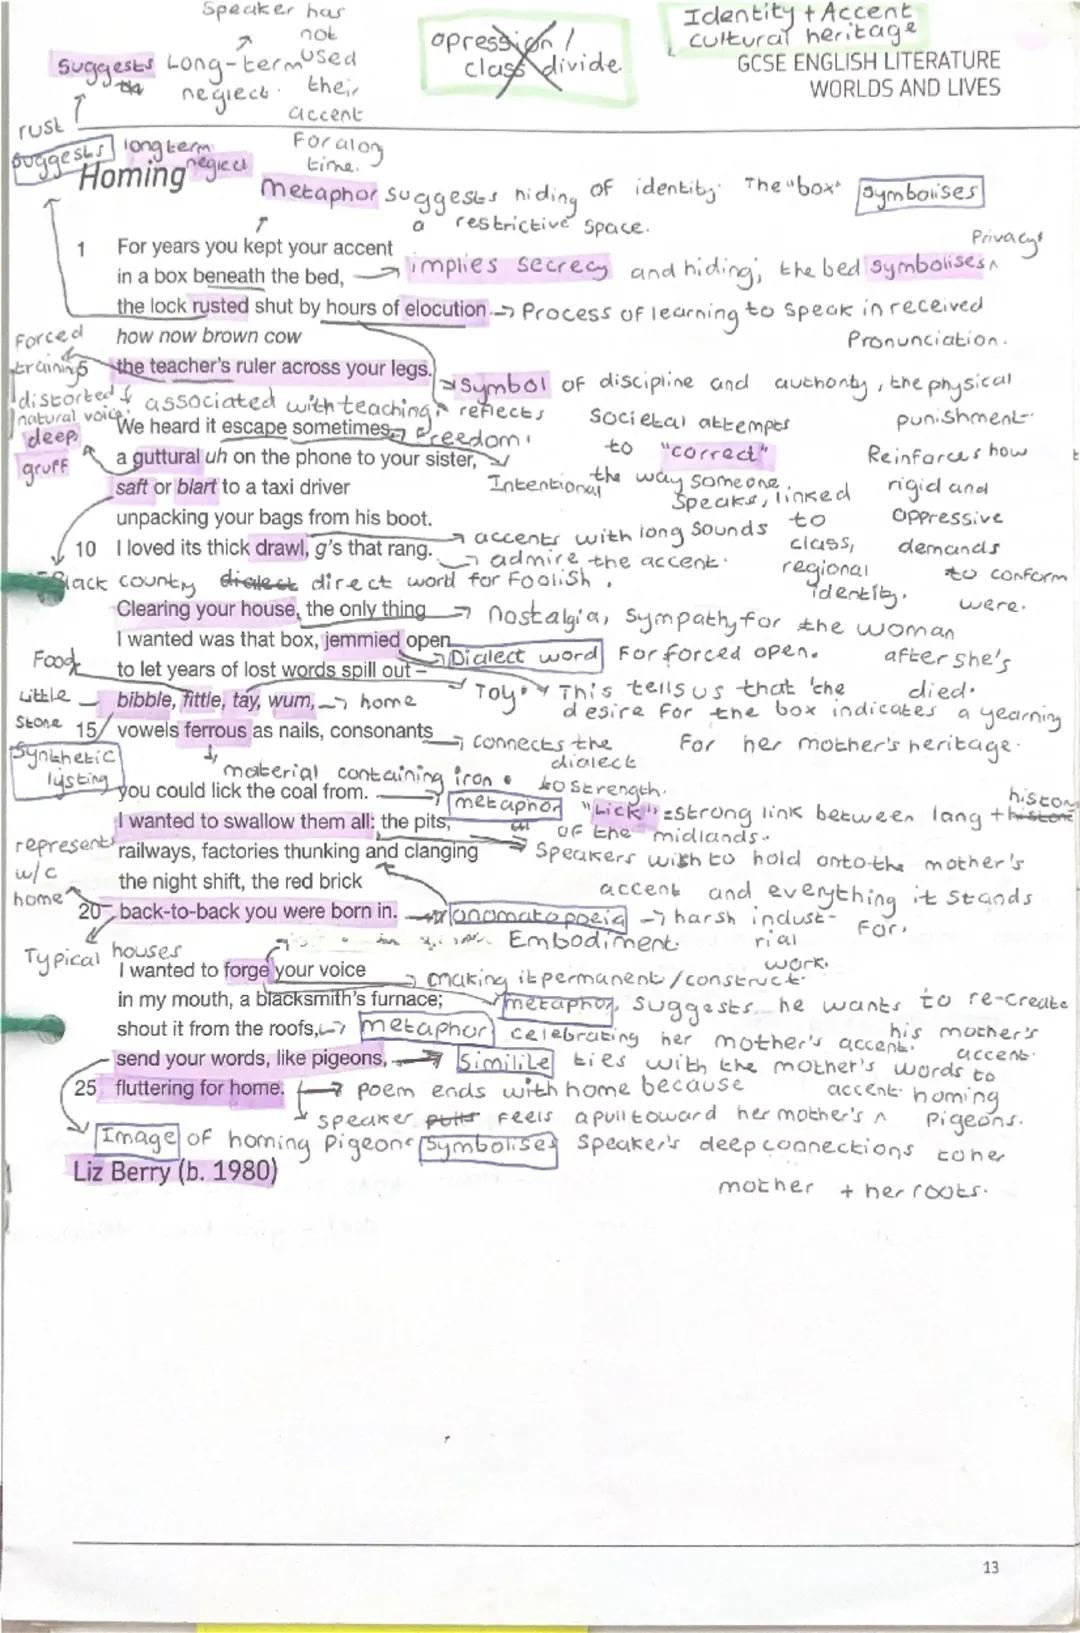 Speaker has
not
used
their
accent
For a long
time.
Suggests Long-term
neglect.
opression /
class divide
Identity + Accent
cultural heritage
GCSE ENGLISH LITERATURE
WORLDS AND LIVES
rust
Suggests long term
neglect
Homing
Metaphor suggests hiding of identity. The "box" symbolises
a restrictive space.
Privacy
1 For years you kept your accent
in a box beneath the bed, → implies secrecy and hiding, the bed symbolises ^
the lock rusted shut by hours of elocution → Process of learning to speak in received
Pronunciation.
how now brown cow
Forced
training
5 the teacher's ruler across your legs.
Symbol of discipline and authority, the physical
punishment
distorted
natural voice.
associated with teaching
reflects
societal attempts
to "correct"
the way someone
speaks, linked
to
class,
regional
identity.
Reinforces how
rigid and
oppressive
demands
to conform
were.
We heard it escape sometimes, → Freedom
deep
gruff
a guttural uh on the phone to your sister,
Intentional
saft or blart to a taxi driver
unpacking your bags from his boot.
10 I loved its thick drawl, g's that rang.
accents with long sounds
admire the accent.
Black country dialect direct word for Foolish.
Clearing your house, the only thing → nostalgia, sympathy for the woman
after she's
died.
I wanted was that box, jemmied open
Dialect word For forced open.
Food
to let years of lost words spill out –
Toy
This tells us that the
desire for the box indicates a yearning
for her mother's heritage.
Little
bibble, fittle, tay, wum, → home
Stone
15 vowels ferrous as nails, consonants
connects the
dialect
to strength.
Synthetic
lysting
material containing iron
you could lick the coal from.
metaphor
"Lick" = strong link between lang + history
of the midlands.
I wanted to swallow them all: the pits,
railways, factories thunking and clanging
Speakers wish to hold onto the mother's
accent and everything it stands
For.
represents
w/c
home
the night shift, the red brick
20 back-to-back you were born in.
onomatopoeia → harsh indust-
rial
work.
Typical houses
Embodiment
I wanted to forge your voice
making it permanent/construct.
in my mouth, a blacksmith's furnace;
metaphor, suggests he wants to re-create
his mother's
accent.
shout it from the roofs, → metaphor celebrating her mother's accent.
send your words, like pigeons, → Similile ties with the mother's words to
homing
Pigeons.
25 fluttering for home. → poem ends with home because
speaker pulls feels a pull toward her mother's ^
accent
Image of homing Pigeons symbolises Speaker's deep connections to her
mother + her roots.
Liz Berry (b. 1980)
13